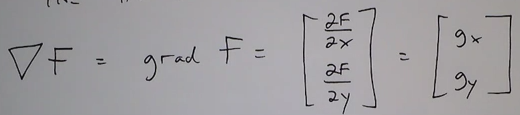 ∇F = grad F = [∂F/∂x ∂F/∂y] = [gx gy]